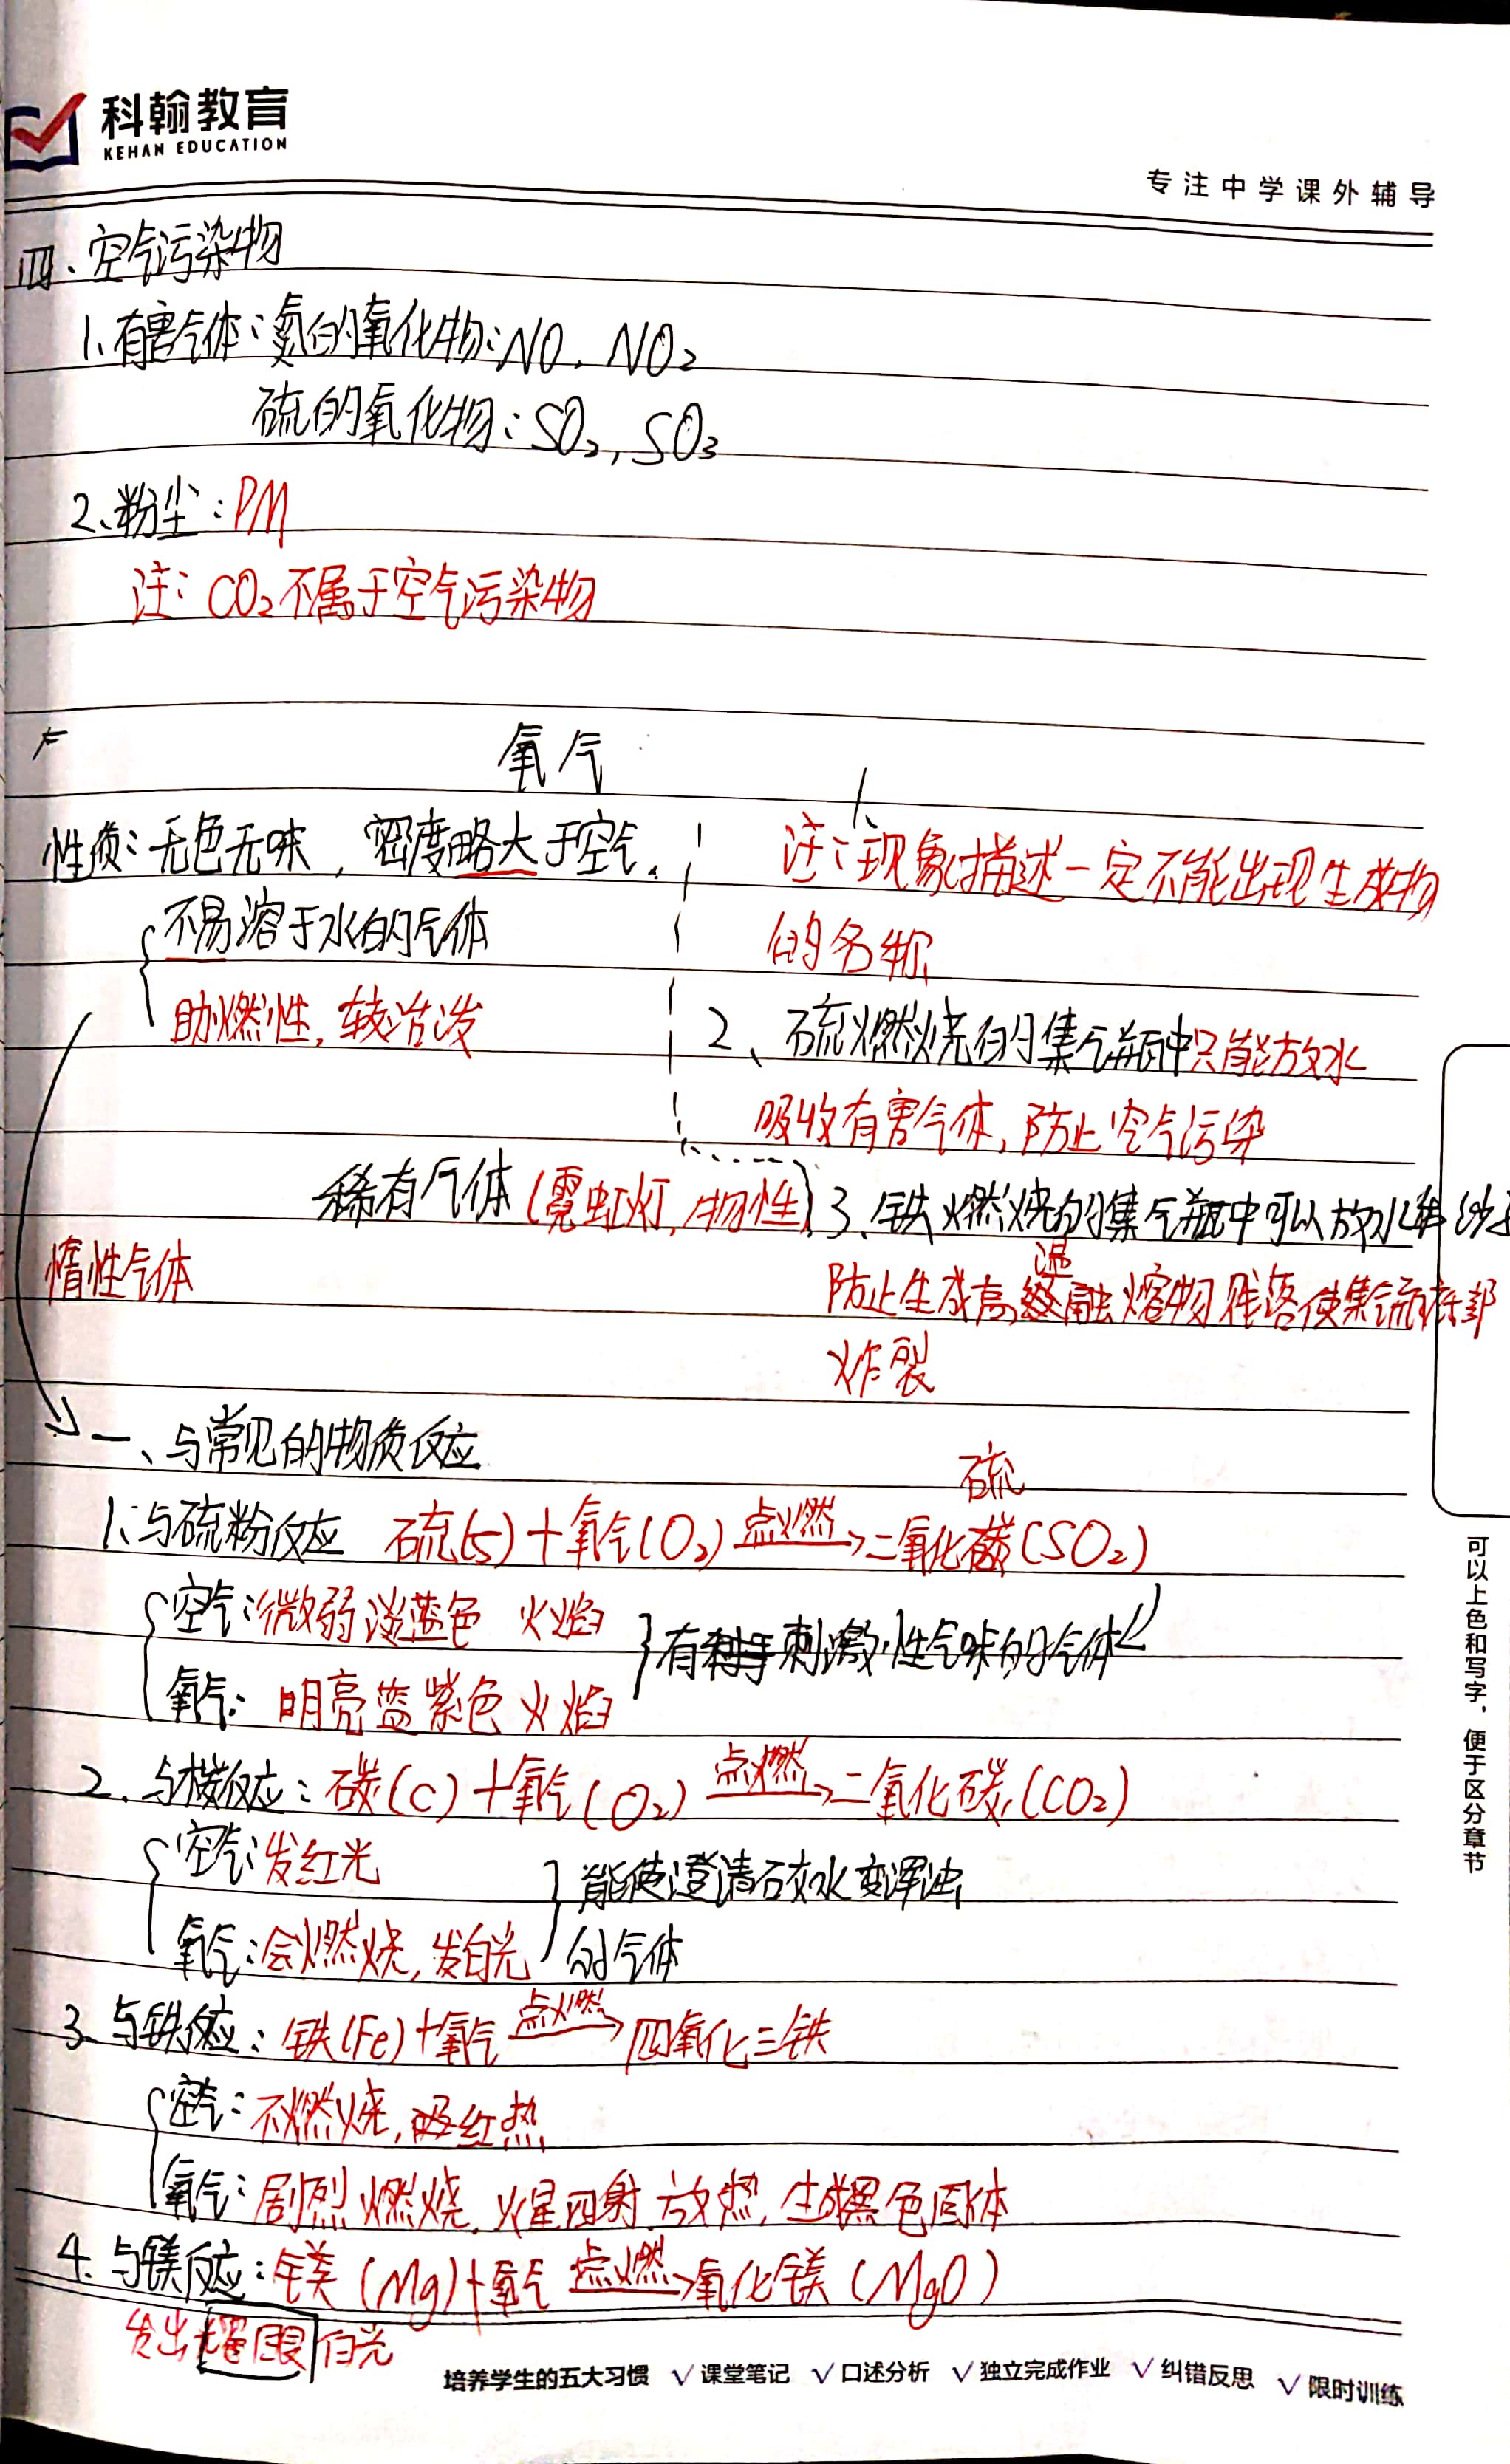 科翰教育
KEHAN EDUCATION
专注中学课外辅导
四、空气污染物
1、有害气体：氮的氧化物：NO、NO₂
硫的氧化物：SO₂，SO₃
2、粉尘：PM
注：CO₂不属于空气污染物
氧气
性质：无色无味，密度略大于空气，
不易溶于水的气体
助燃性，较活泼
1、
注：现象描述一定不能出现生成物
的名称
2、硫燃烧的集气瓶中只能放水
吸收有害气体，防止空气污染
稀有气体（霓虹灯，惰性）
惰性气体
3、铁燃烧的集气瓶中可以放水
防止生成高温融熔物溅落使集气瓶底部
炸裂
一、与常见的物质反应
1、与硫粉反应 硫(S)＋氧气(O₂) 点燃→ 二氧化硫(SO₂)
空气：微弱淡蓝色 火焰
氧气：明亮蓝紫色火焰
有刺激性气味的气体
2、与碳反应：碳(C)＋氧气(O₂) 点燃→ 二氧化碳(CO₂)
空气：发红光
氧气：会燃烧，发白光
能使澄清石灰水变浑浊
的气体
3、与铁反应：铁(Fe)＋氧气 点燃→ 四氧化三铁
空气：不燃烧，红热
氧气：剧烈燃烧，火星四射，放热，生成黑色固体
4、与镁反应：镁(Mg)＋氧气 点燃→ 氧化镁(MgO)
发出耀眼白光
可以上色和写字，便于区分章节
培养学生的五大习惯 √课堂笔记 √口述分析 √独立完成作业 √纠错反思 √限时训练